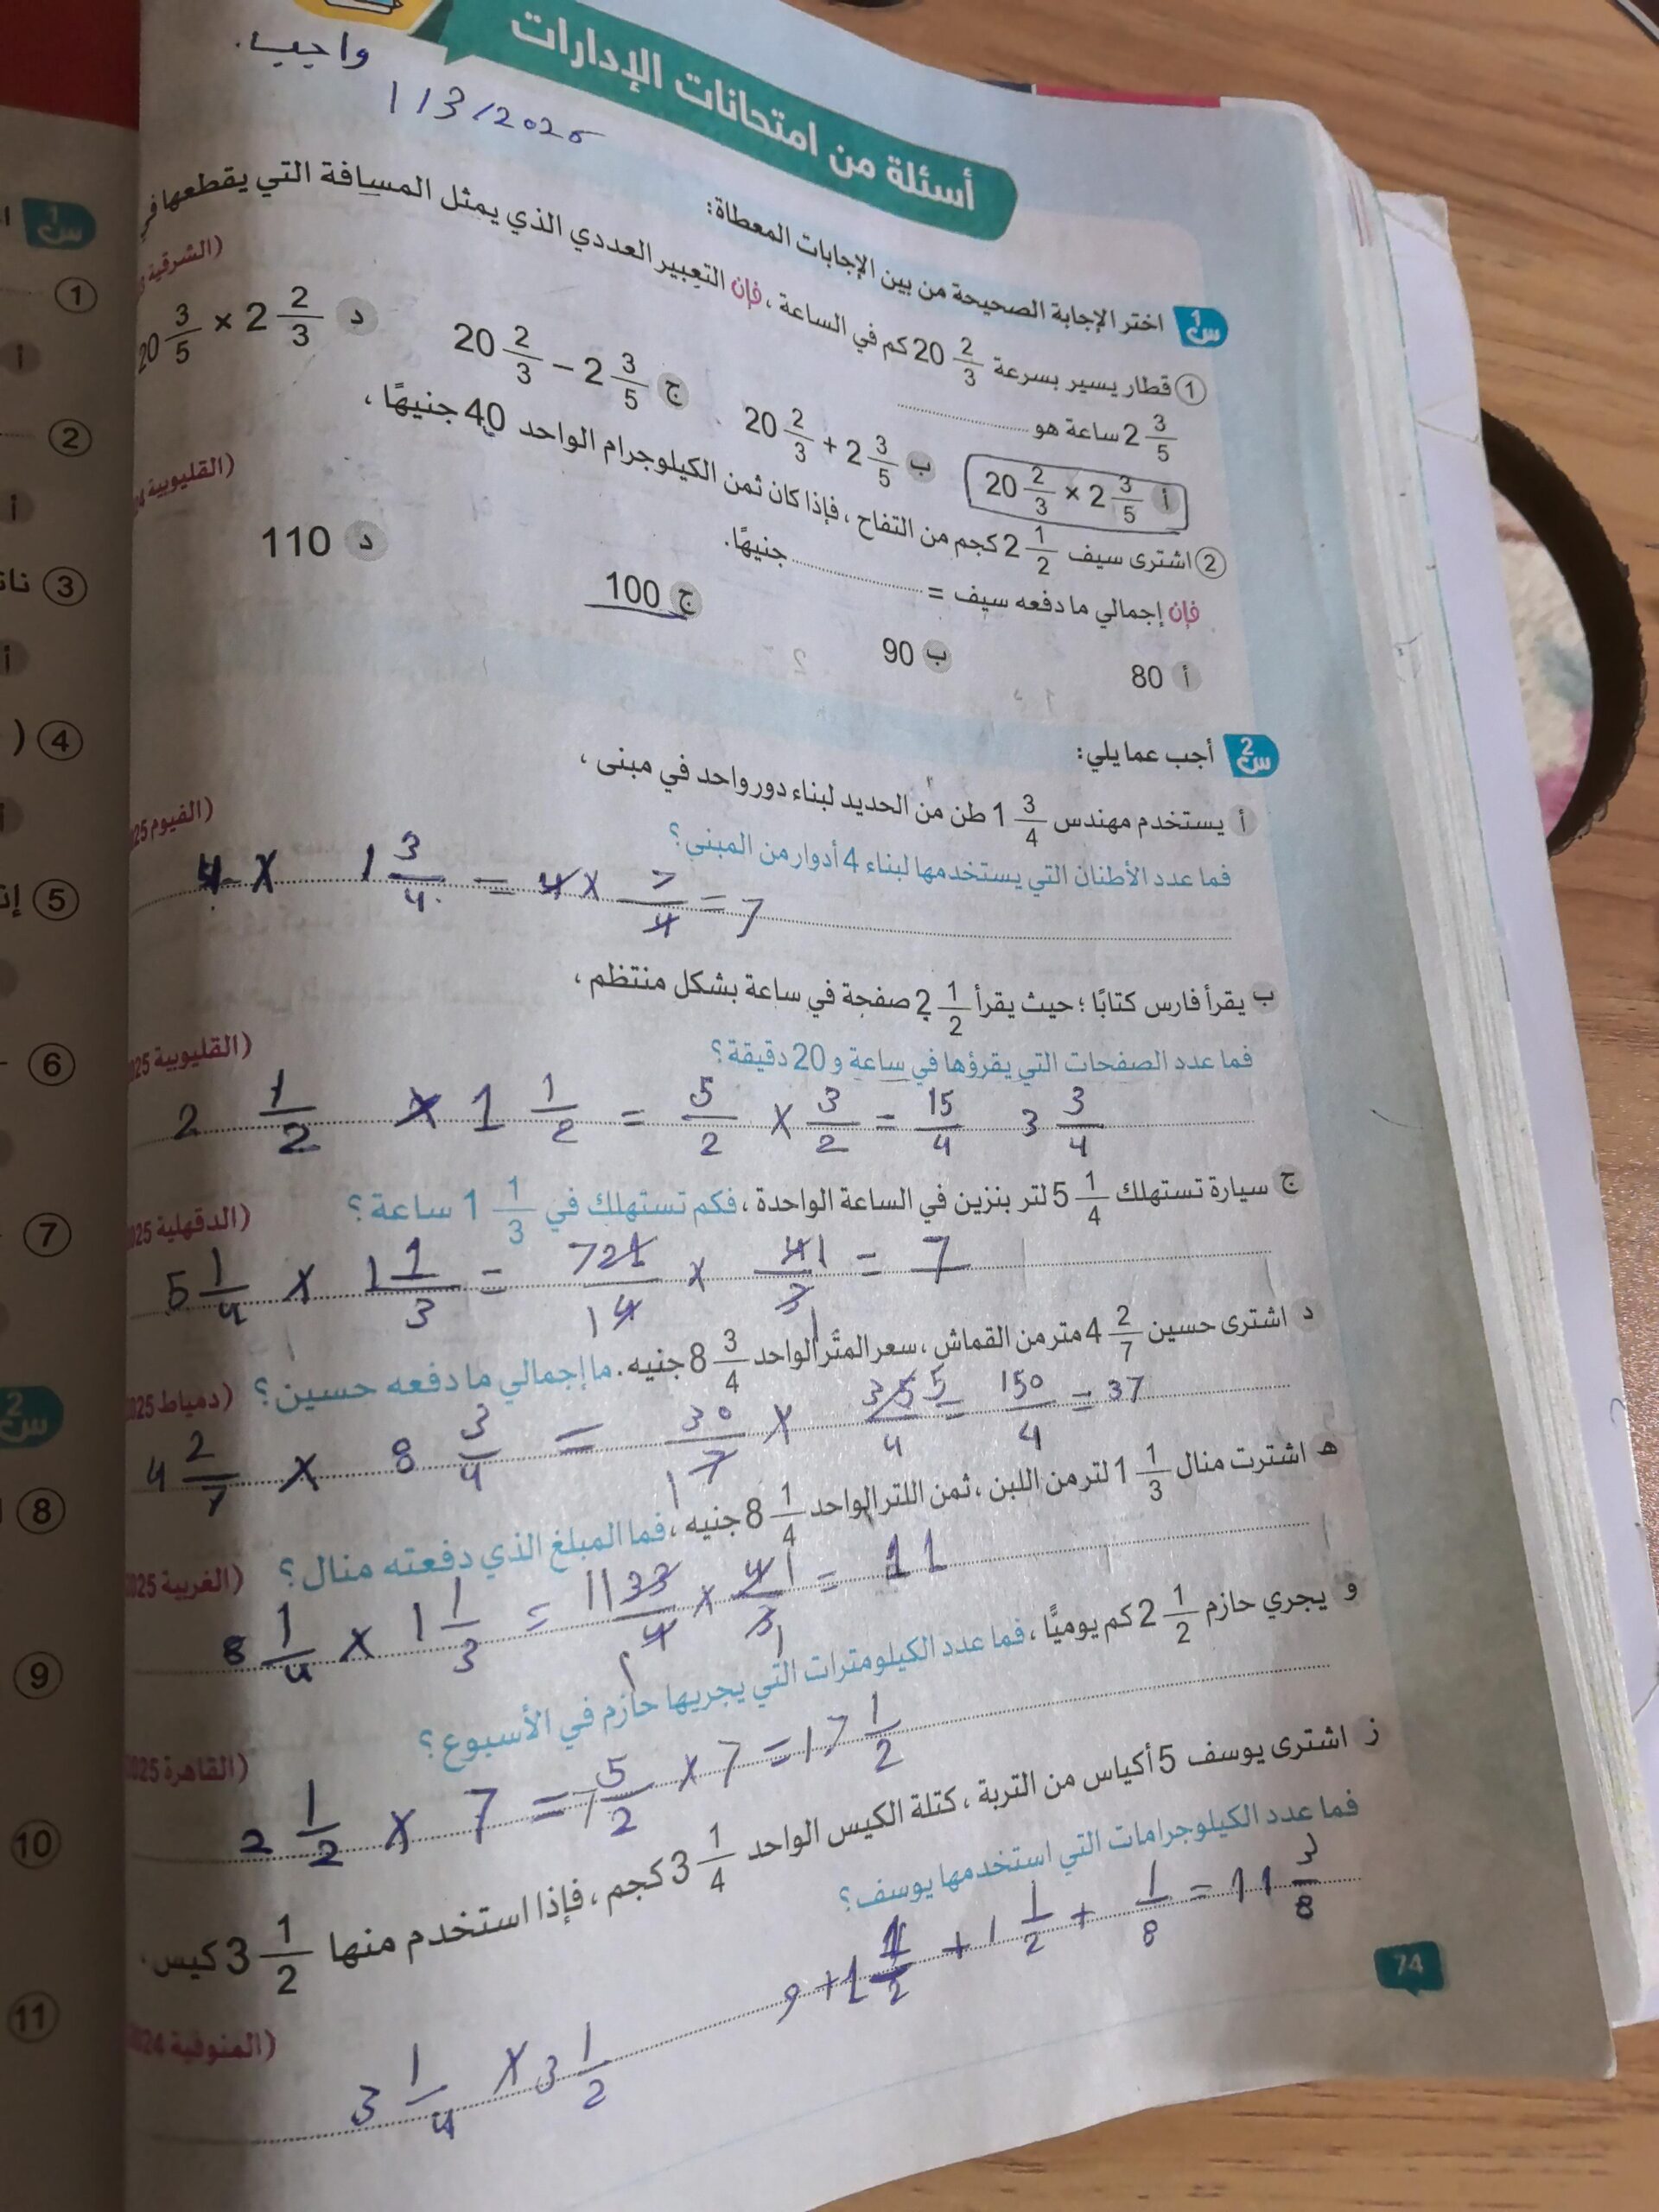 واجب.
1/3/2026
أسئلة من امتحانات الإدارات
س1 اختر الإجابة الصحيحة من بين الإجابات المعطاة:
① قطار يسير بسرعة 20 2/3 كم في الساعة، فإن التعبير العددي الذي يمثل المسافة التي يقطعها في
2 3/5 ساعة هو ............ (الشرقية
أ 20 2/3 × 2 3/5 ب 20 2/3 + 2 3/5 ج 20 2/3 − 2 3/5 د 20 3/5 × 2 2/3
② اشترى سيف 2 1/2 كجم من التفاح، فإذا كان ثمن الكيلوجرام الواحد 40 جنيهًا،
فإن إجمالي ما دفعه سيف = ............ جنيهًا. (القليوبية
أ 80 ب 90 ج 100 د 110
س2 أجب عما يلي:
أ يستخدم مهندس 1 3/4 طن من الحديد لبناء دور واحد في مبنى،
فما عدد الأطنان التي يستخدمها لبناء 4 أدوار من المبنى؟ (الفيوم 25
4 × 1 3/4 = 4 × 7/4 = 7
ب يقرأ فارس كتابًا؛ حيث يقرأ 2 1/2 صفحة في ساعة بشكل منتظم،
فما عدد الصفحات التي يقرؤها في ساعة و 20 دقيقة؟ (القليوبية 025
2 1/2 × 1 1/2 = 5/2 × 3/2 = 15/4 3 3/4
ج سيارة تستهلك 5 1/4 لتر بنزين في الساعة الواحدة، فكم تستهلك في 1 1/3 ساعة؟ (الدقهلية 025
5 1/4 × 1 1/3 = 7 21/1 4 × 4 1/3 1 = 7
د اشترى حسين 4 2/7 متر من القماش، سعر المتر الواحد 8 3/4 جنيه. ما إجمالي ما دفعه حسين؟ (دمياط 025
4 2/7 × 8 3/4 = 30/1 7 × 35 5/4 = 150/4 = 37
ه اشترت منال 1 1/3 لتر من اللبن، ثمن اللتر الواحد 8 1/4 جنيه، فما المبلغ الذي دفعته منال؟ (الغربية 025
8 1/4 × 1 1/3 = 11 33/1 4 × 4 1/3 1 = 11
و يجري حازم 2 1/2 كم يوميًّا، فما عدد الكيلومترات التي يجريها حازم في الأسبوع؟ (القاهرة 025
2 1/2 × 7 = 5/2 × 7 = 17 1/2
ز اشترى يوسف 5 أكياس من التربة، كتلة الكيس الواحد 3 1/4 كجم، فإذا استخدم منها 3 1/2 كيس.
فما عدد الكيلوجرامات التي استخدمها يوسف؟ (المنوفية 024
3 1/4 × 3 1/2 9 + 1 1/2 + 1 1/2 + 1/8 = 11 3/8
74
س1
①
أ
②
أ
③
أ
④ (
⑤
⑥
⑦
س2
⑧
⑨
⑩
⑪